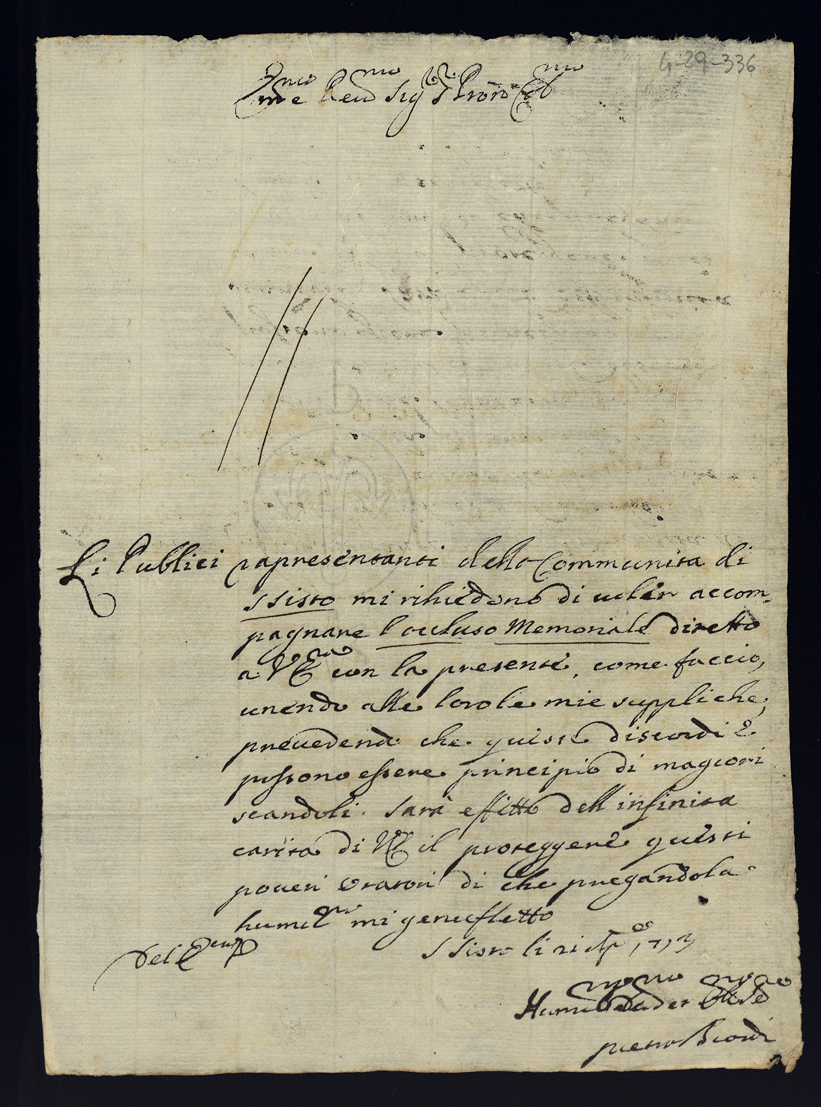 4-29-336
Em.mo e Reu.mo Sig.r Sig.r Pron Col.mo
Li Publici rapresentanti della Communita di
S Sisto mi richiedono di uoler accom=
pagnare l'occluso Memoriale diretto
a VE con la presente, come faccio,
unendo alle loro le mie suppliche,
preuedendo che queste discordie
possono essere principio di magiori
scandoli. Sarà effetto dell infinita
carita di VE il proteggere questi
poueri oratori di che pregandola
humil.te mi genefletto
Dell E.V.
S Sisto li 21 1713
Humil.mo Deu.mo et Obl.mo Se.re
pietro Biondi